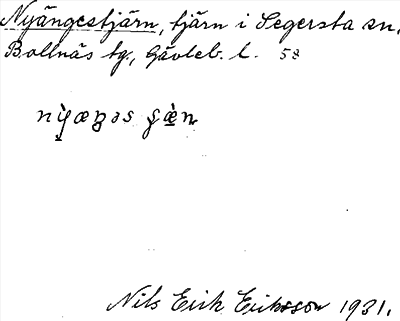 Nyängestjärn, tjärn i Segersta sn,
Bollnäs tg, Gävleb. l. 58
Nils Erik Eriksson 1931.